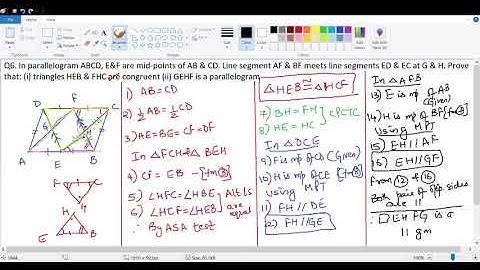 Q6. In parallelogram ABCD, E&F are mid-points of AB & CD. Line segment AF & BF meets line segments ED & EC at G & H. Prove
that: (i) triangles HEB & FHC are congruent (ii) GEHF is a parallelogram
D F C
G H
A E B
F C
H
H
E B
1) AB = CD
2) ½ AB = ½ CD
3) AE = BE = CF = DF
In △FCH & △BEH
4) CF = EB - [fm ③]
5) ∠HFC = ∠HBE } Alt ∠s
6) ∠HCF = ∠HEB } are equal
∴ By ASA test
△HEB ≅ △HCF
7) BH = FH } CPCTC
8) HE = HC }
In △DCE
9) F is mp of CD (Given)
10) H is mp of CE [fm ⑧]
Using MPT
11) FH // DE
12) FH // GE
In △AFB
13) E is mp of AB
(Given)
14) H is mp of BF [fm ⑦]
Using MPT
15) EH // AF
16) EH // GF
From ⑫ & ⑯
Both pairs of opp sides
are ||
∴ □ EHFG is a
|| gm